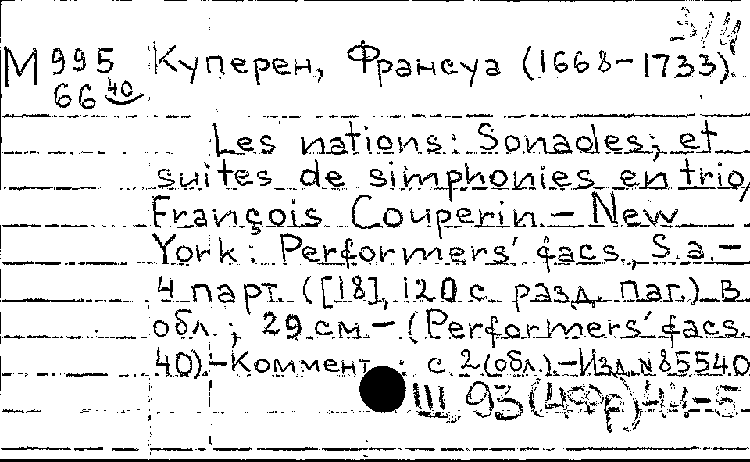 3/4
М 995 Куперен, Франсуа (1668-1733)
66 40
Les nations: Sonades; et
suites de simphonies en trio/
François Couperin.- New
York: Performers' facs., S.a.-
4 парт. ([18], 120 с. разд. паг.) в
обл.; 29 см.- (Performers' facs.
40).-Коммент.: с. 2(обл.).-Изд. N 85540
Ш 93(4Фр)44-5